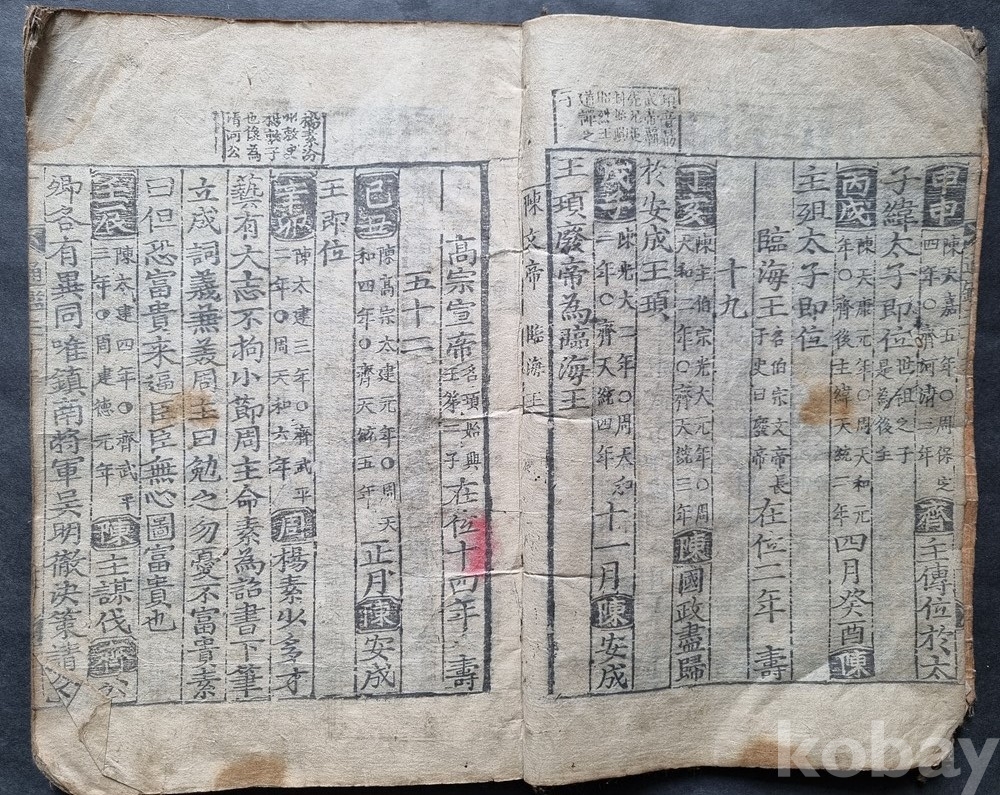 甲申陳天嘉五年〇周保定四年〇齊河清三年齊主傳位於太
子緯太子即位世祖之子是為後主
丙戌陳天康元年〇周天和元年〇齊後主緯天統二年四月癸酉陳
主殂太子即位
臨海王名伯宗文帝長子史曰廢帝在位二年 壽
十九
丁亥陳主伯宗光大元年〇周天和二年〇齊天統三年陳國政盡歸
於安成王頊
戊子陳光大二年〇周天和三年〇齊天統四年十一月陳安成
王頊廢帝為臨海王
陳文帝 臨海王
高宗宣帝名頊始興王第二子在位十四年 壽
五十二
己丑陳高宗太建元年〇周天和四年〇齊天統五年正月陳安成
王即位
辛卯陳太建三年〇齊武平二年〇周天和六年周楊素少多才
藝有大志不拘小節周主命素為詔書下筆
立成詞義兼美周主曰勉之勿憂不富貴素
曰但恐富貴來逼臣臣無心圖富貴也
壬辰陳太建四年〇齊武平三年〇周建德元年陳主謀伐齊公
卿各有異同唯鎮南將軍吳明徹決策請
kobay